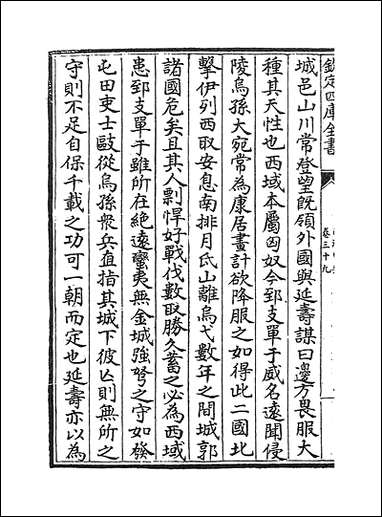 欽定四庫全書
卷三十九
城邑山川常登望既領外國與延壽謀曰邊方畏服大
種其天性也西域本屬匈奴今郅支單于威名遠聞侵
陵烏孫大宛常為康居畫計欲降服之如得此二國北
擊伊列西取安息南排月氏山離烏弋數年之間城郭
諸國危矣且其人剽悍好戰伐數取勝久蓄之必為西域
患郅支單于雖所在絕遠蠻夷無金城強弩之守如發
屯田吏士敺從烏孫衆兵直指其城下彼亾則無所之
守則不足自保千載之功可一朝而定也延壽亦以為